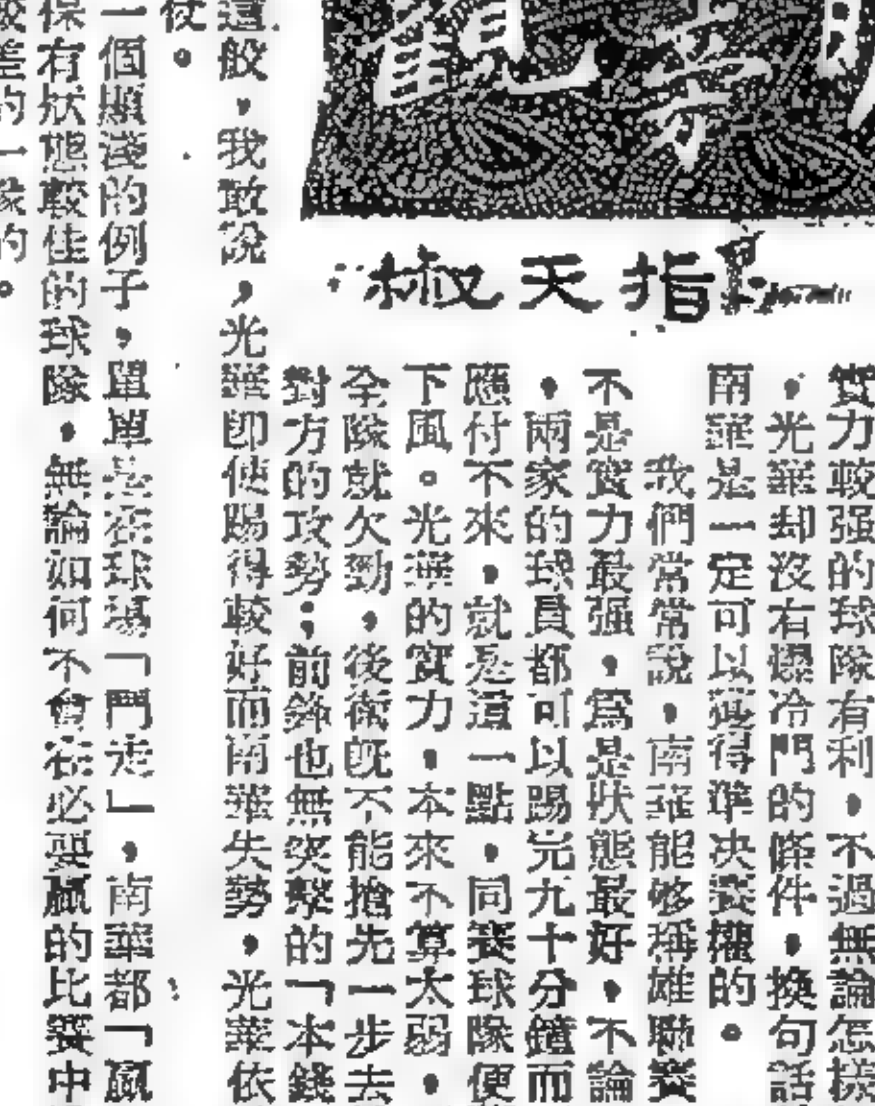 觀
指天椒
實力較强的球隊有利,不過無論怎樣
,光華却沒有爆冷門的條件,換句話
南華是一定可以獲得準决賽權的。
我們常常說,南華能够稱雄聯賽
不是實力最强,爲是狀態最好,不論
,兩家的球員都可以踢完九十分鐘而
應付不來,就是這一點,同賽球隊便
下風。光華的實力,本來不算太弱,
全隊就欠勁,後衛旣不能搶先一步去
對方的攻勢;前鋒也無突擊的「本錢
這般,我敢說,光華即使踢得較好而南華失勢,光華依
仗。
一個顯淺的例子,單單是在球場「鬥走」,南華都「贏
保有狀態較佳的球隊,無論如何不會在必要贏的比賽中
較差的一隊的。